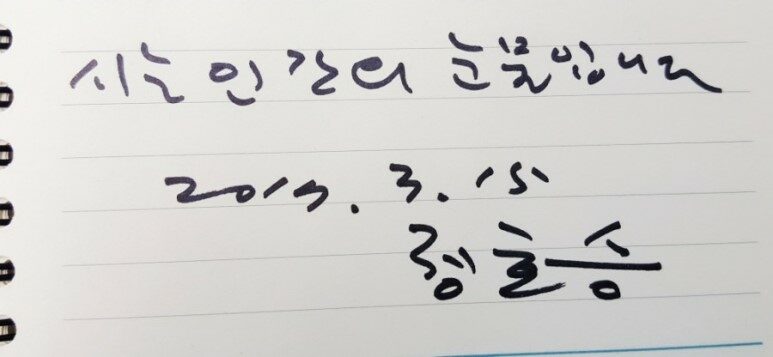 시는 인간의 눈물입니다
2019. 3. 15
정호승